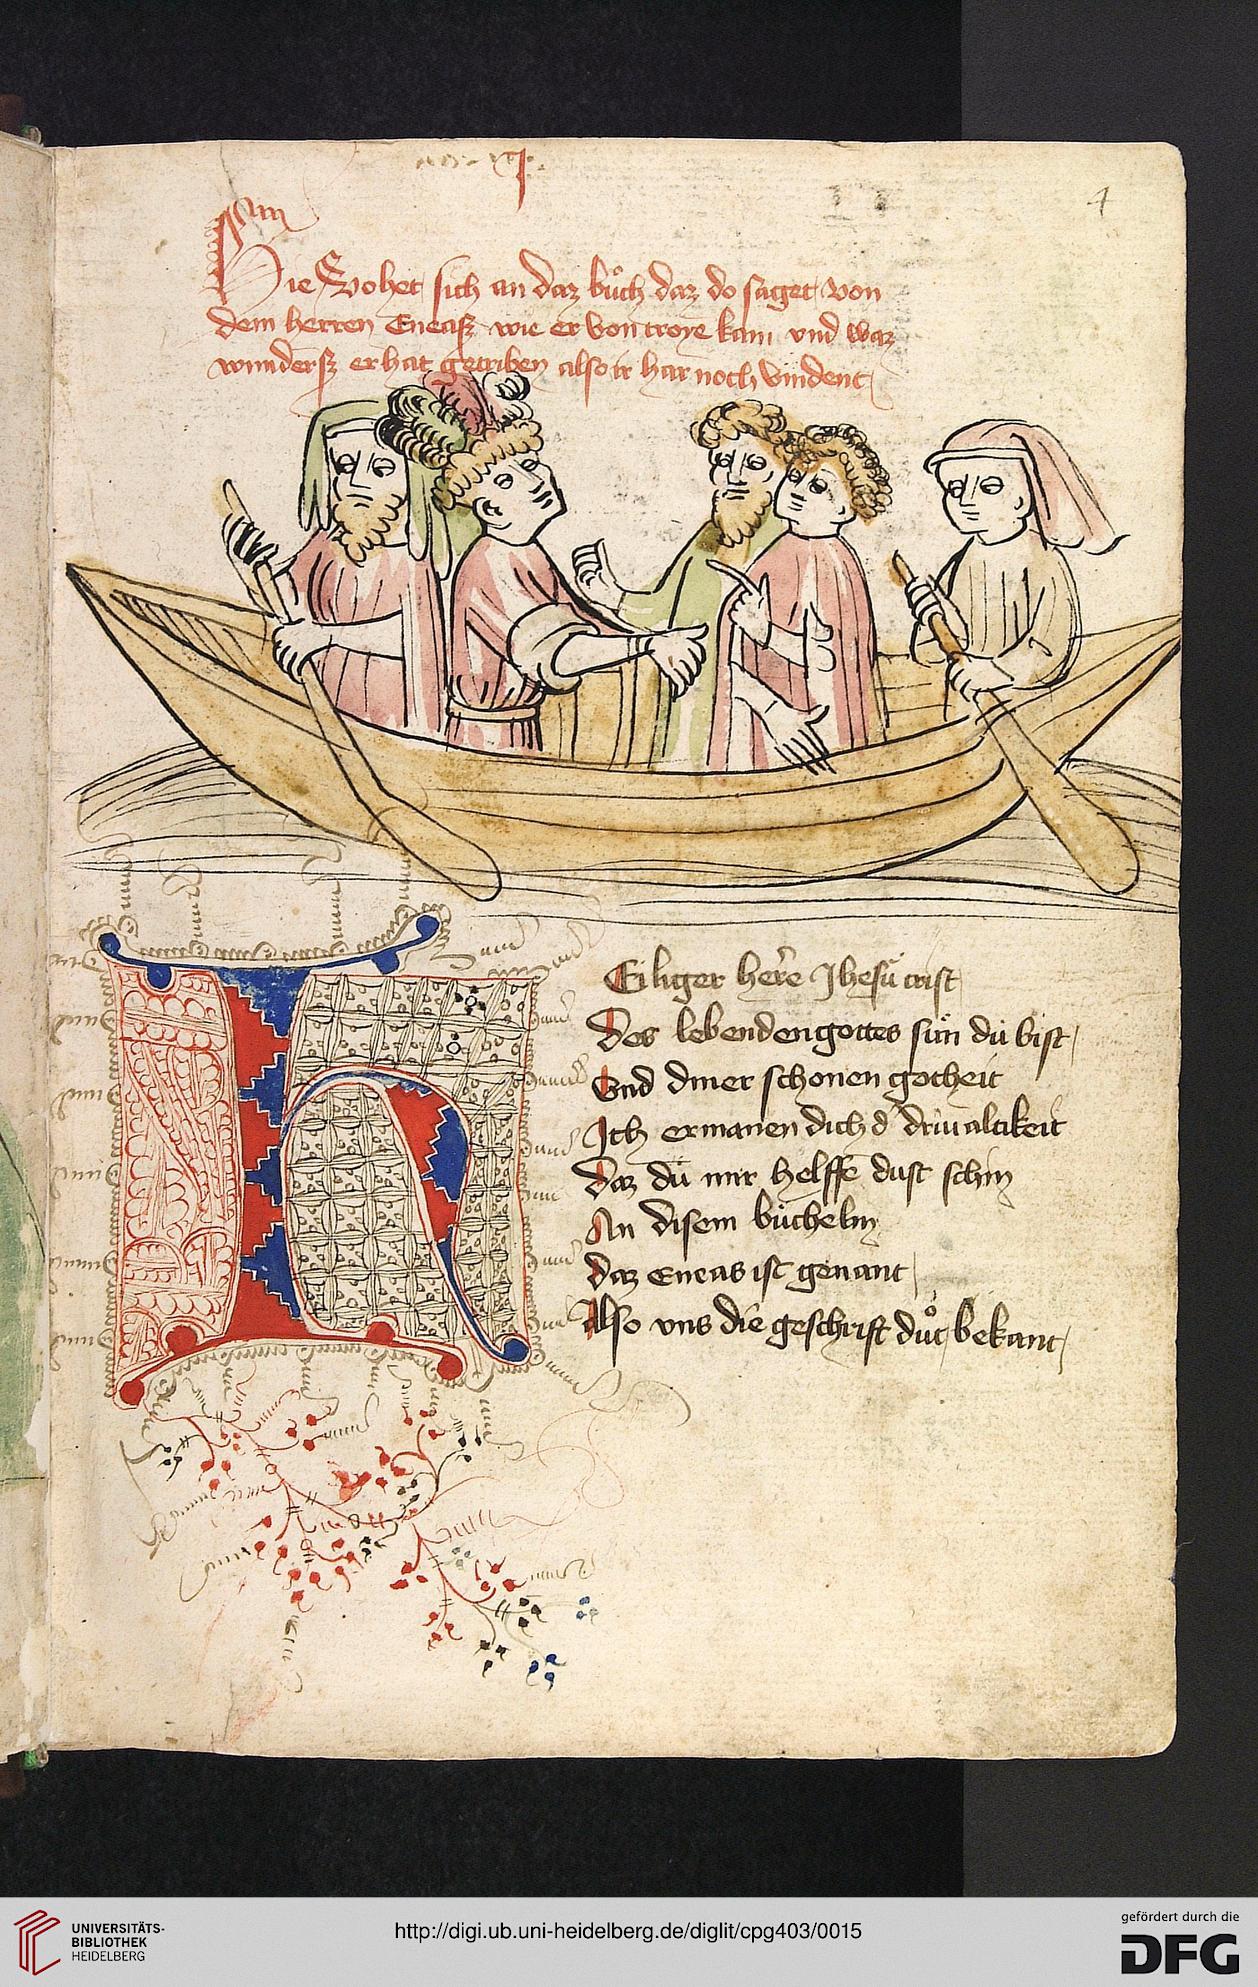 I
4
Hie Vohet sich an daz bůch daz do saget von
dem herren Eneasz wie er von troye kam vnd waz
wundersz er hat getriben also ir har noch vindent
HEiliger herre Jhesu crist
Des lebenden gottes sün dü bist
Vnd diner schonen gotheit
Ich ermanen dich d' driualtikeit
Daz dü mir helffe dust schin
An disem büchelin
Daz Eneas ist genant
Also vns die geschrift důt bekant
UNIVERSITÄTS-
BIBLIOTHEK
HEIDELBERG
http://digi.ub.uni-heidelberg.de/diglit/cpg403/0015
gefördert durch die
DFG